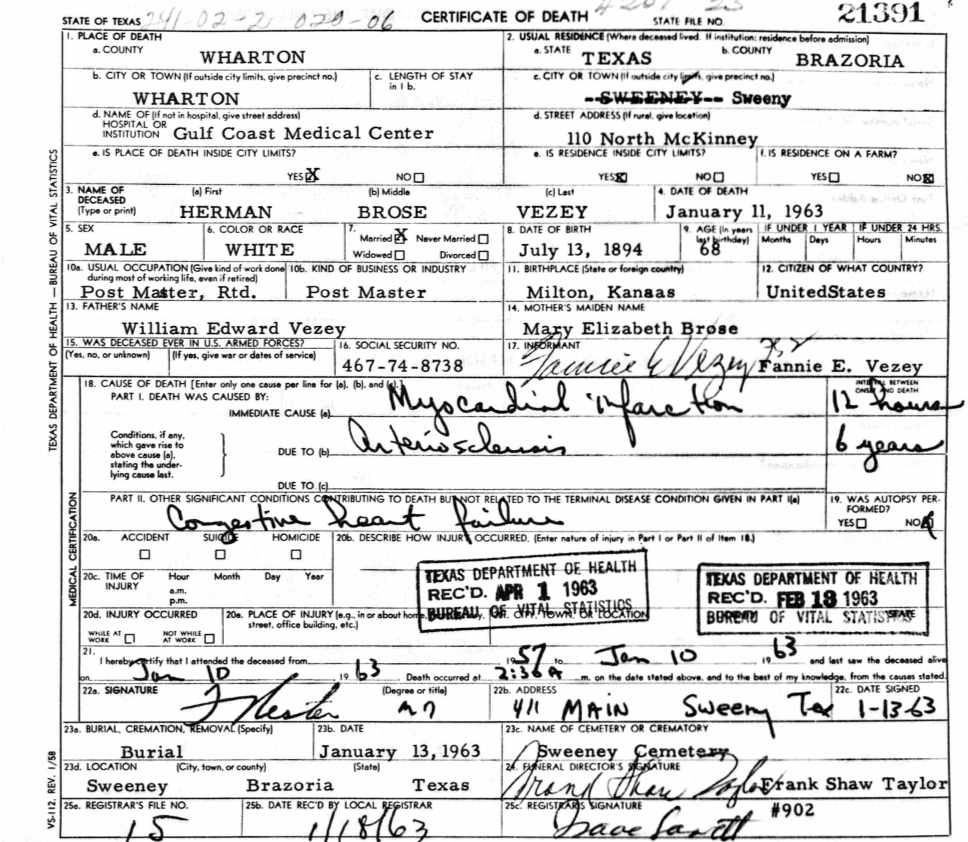 STATE OF TEXAS 241-02-2, 020-06 CERTIFICATE OF DEATH STATE FILE NO. 21391
1. PLACE OF DEATH
a. COUNTY
WHARTON
2. USUAL RESIDENCE (Where deceased lived. If institution: residence before admission)
a. STATE b. COUNTY
TEXAS BRAZORIA
b. CITY OR TOWN (If outside city limits, give precinct no.)
WHARTON
c. LENGTH OF STAY
in 1 b.
c. CITY OR TOWN (If outside city limits, give precinct no.)
--SWEENEY-- Sweeny
d. NAME OF (If not in hospital, give street address)
HOSPITAL OR
INSTITUTION Gulf Coast Medical Center
d. STREET ADDRESS (If rural, give location)
110 North McKinney
e. IS PLACE OF DEATH INSIDE CITY LIMITS?
YES X NO
e. IS RESIDENCE INSIDE CITY LIMITS?
YES X NO
f. IS RESIDENCE ON A FARM?
YES NO X
3. NAME OF
DECEASED
(Type or print)
(a) First (b) Middle (c) Last
HERMAN BROSE VEZEY
4. DATE OF DEATH
January 11, 1963
5. SEX
MALE
6. COLOR OR RACE
WHITE
7.
Married X Never Married
Widowed Divorced
8. DATE OF BIRTH
July 13, 1894
9. AGE (In years
last birthday)
68
IF UNDER 1 YEAR IF UNDER 24 HRS.
Months Days Hours Minutes
10a. USUAL OCCUPATION (Give kind of work done
during most of working life, even if retired)
Post Master, Rtd.
10b. KIND OF BUSINESS OR INDUSTRY
Post Master
11. BIRTHPLACE (State or foreign country)
Milton, Kansas
12. CITIZEN OF WHAT COUNTRY?
UnitedStates
13. FATHER'S NAME
William Edward Vezey
14. MOTHER'S MAIDEN NAME
Mary Elizabeth Brose
15. WAS DECEASED EVER IN U.S. ARMED FORCES?
(Yes, no, or unknown) (If yes, give war or dates of service)
16. SOCIAL SECURITY NO.
467-74-8738
17. INFORMANT
Fannie E Vezey Fannie E. Vezey
18. CAUSE OF DEATH [Enter only one cause per line for (a), (b), and (c).]
PART I. DEATH WAS CAUSED BY:
IMMEDIATE CAUSE (a) Myocardial infarction
INTERVAL BETWEEN
ONSET AND DEATH
12 hours
Conditions, if any,
which gave rise to
above cause (a),
stating the under-
lying cause last.
DUE TO (b) Arteriosclerosis
6 years
DUE TO (c)
PART II. OTHER SIGNIFICANT CONDITIONS CONTRIBUTING TO DEATH BUT NOT RELATED TO THE TERMINAL DISEASE CONDITION GIVEN IN PART I(a)
Congestive heart failure
19. WAS AUTOPSY PER-
FORMED?
YES NO X
20a. ACCIDENT SUICIDE HOMICIDE
20b. DESCRIBE HOW INJURY OCCURRED. (Enter nature of injury in Part I or Part II of Item 18.)
20c. TIME OF
INJURY
Hour Month Day Year
a.m.
p.m.
TEXAS DEPARTMENT OF HEALTH
REC'D. APR 1 1963
BUREAU OF VITAL STATISTICS
TEXAS DEPARTMENT OF HEALTH
REC'D. FEB 13 1963
BUREAU OF VITAL STATISTICS
20d. INJURY OCCURRED
WHILE AT
WORK
NOT WHILE
AT WORK
20e. PLACE OF INJURY (e.g., in or about home,
street, office building, etc.)
CITY, TOWN, OR LOCATION
STATE
21.
I hereby certify that I attended the deceased from 1957 to Jan 10 1963 and last saw the deceased alive
on Jan 10 1963 Death occurred at 2:36 A m. on the date stated above, and to the best of my knowledge, from the causes stated.
22a. SIGNATURE (Degree or title)
MD
22b. ADDRESS
411 MAIN Sweeny Tex
22c. DATE SIGNED
1-13-63
23a. BURIAL, CREMATION, REMOVAL (Specify)
Burial
23b. DATE
January 13, 1963
23c. NAME OF CEMETERY OR CREMATORY
Sweeney Cemetery
23d. LOCATION (City, town, or county) (State)
Sweeney Brazoria Texas
24. FUNERAL DIRECTOR'S SIGNATURE
Frank Shaw Taylor Frank Shaw Taylor
#902
25a. REGISTRAR'S FILE NO.
15
25b. DATE REC'D BY LOCAL REGISTRAR
1/18/63
25c. REGISTRAR'S SIGNATURE
TEXAS DEPARTMENT OF HEALTH — BUREAU OF VITAL STATISTICS
MEDICAL CERTIFICATION
VS-112. REV. 1/58